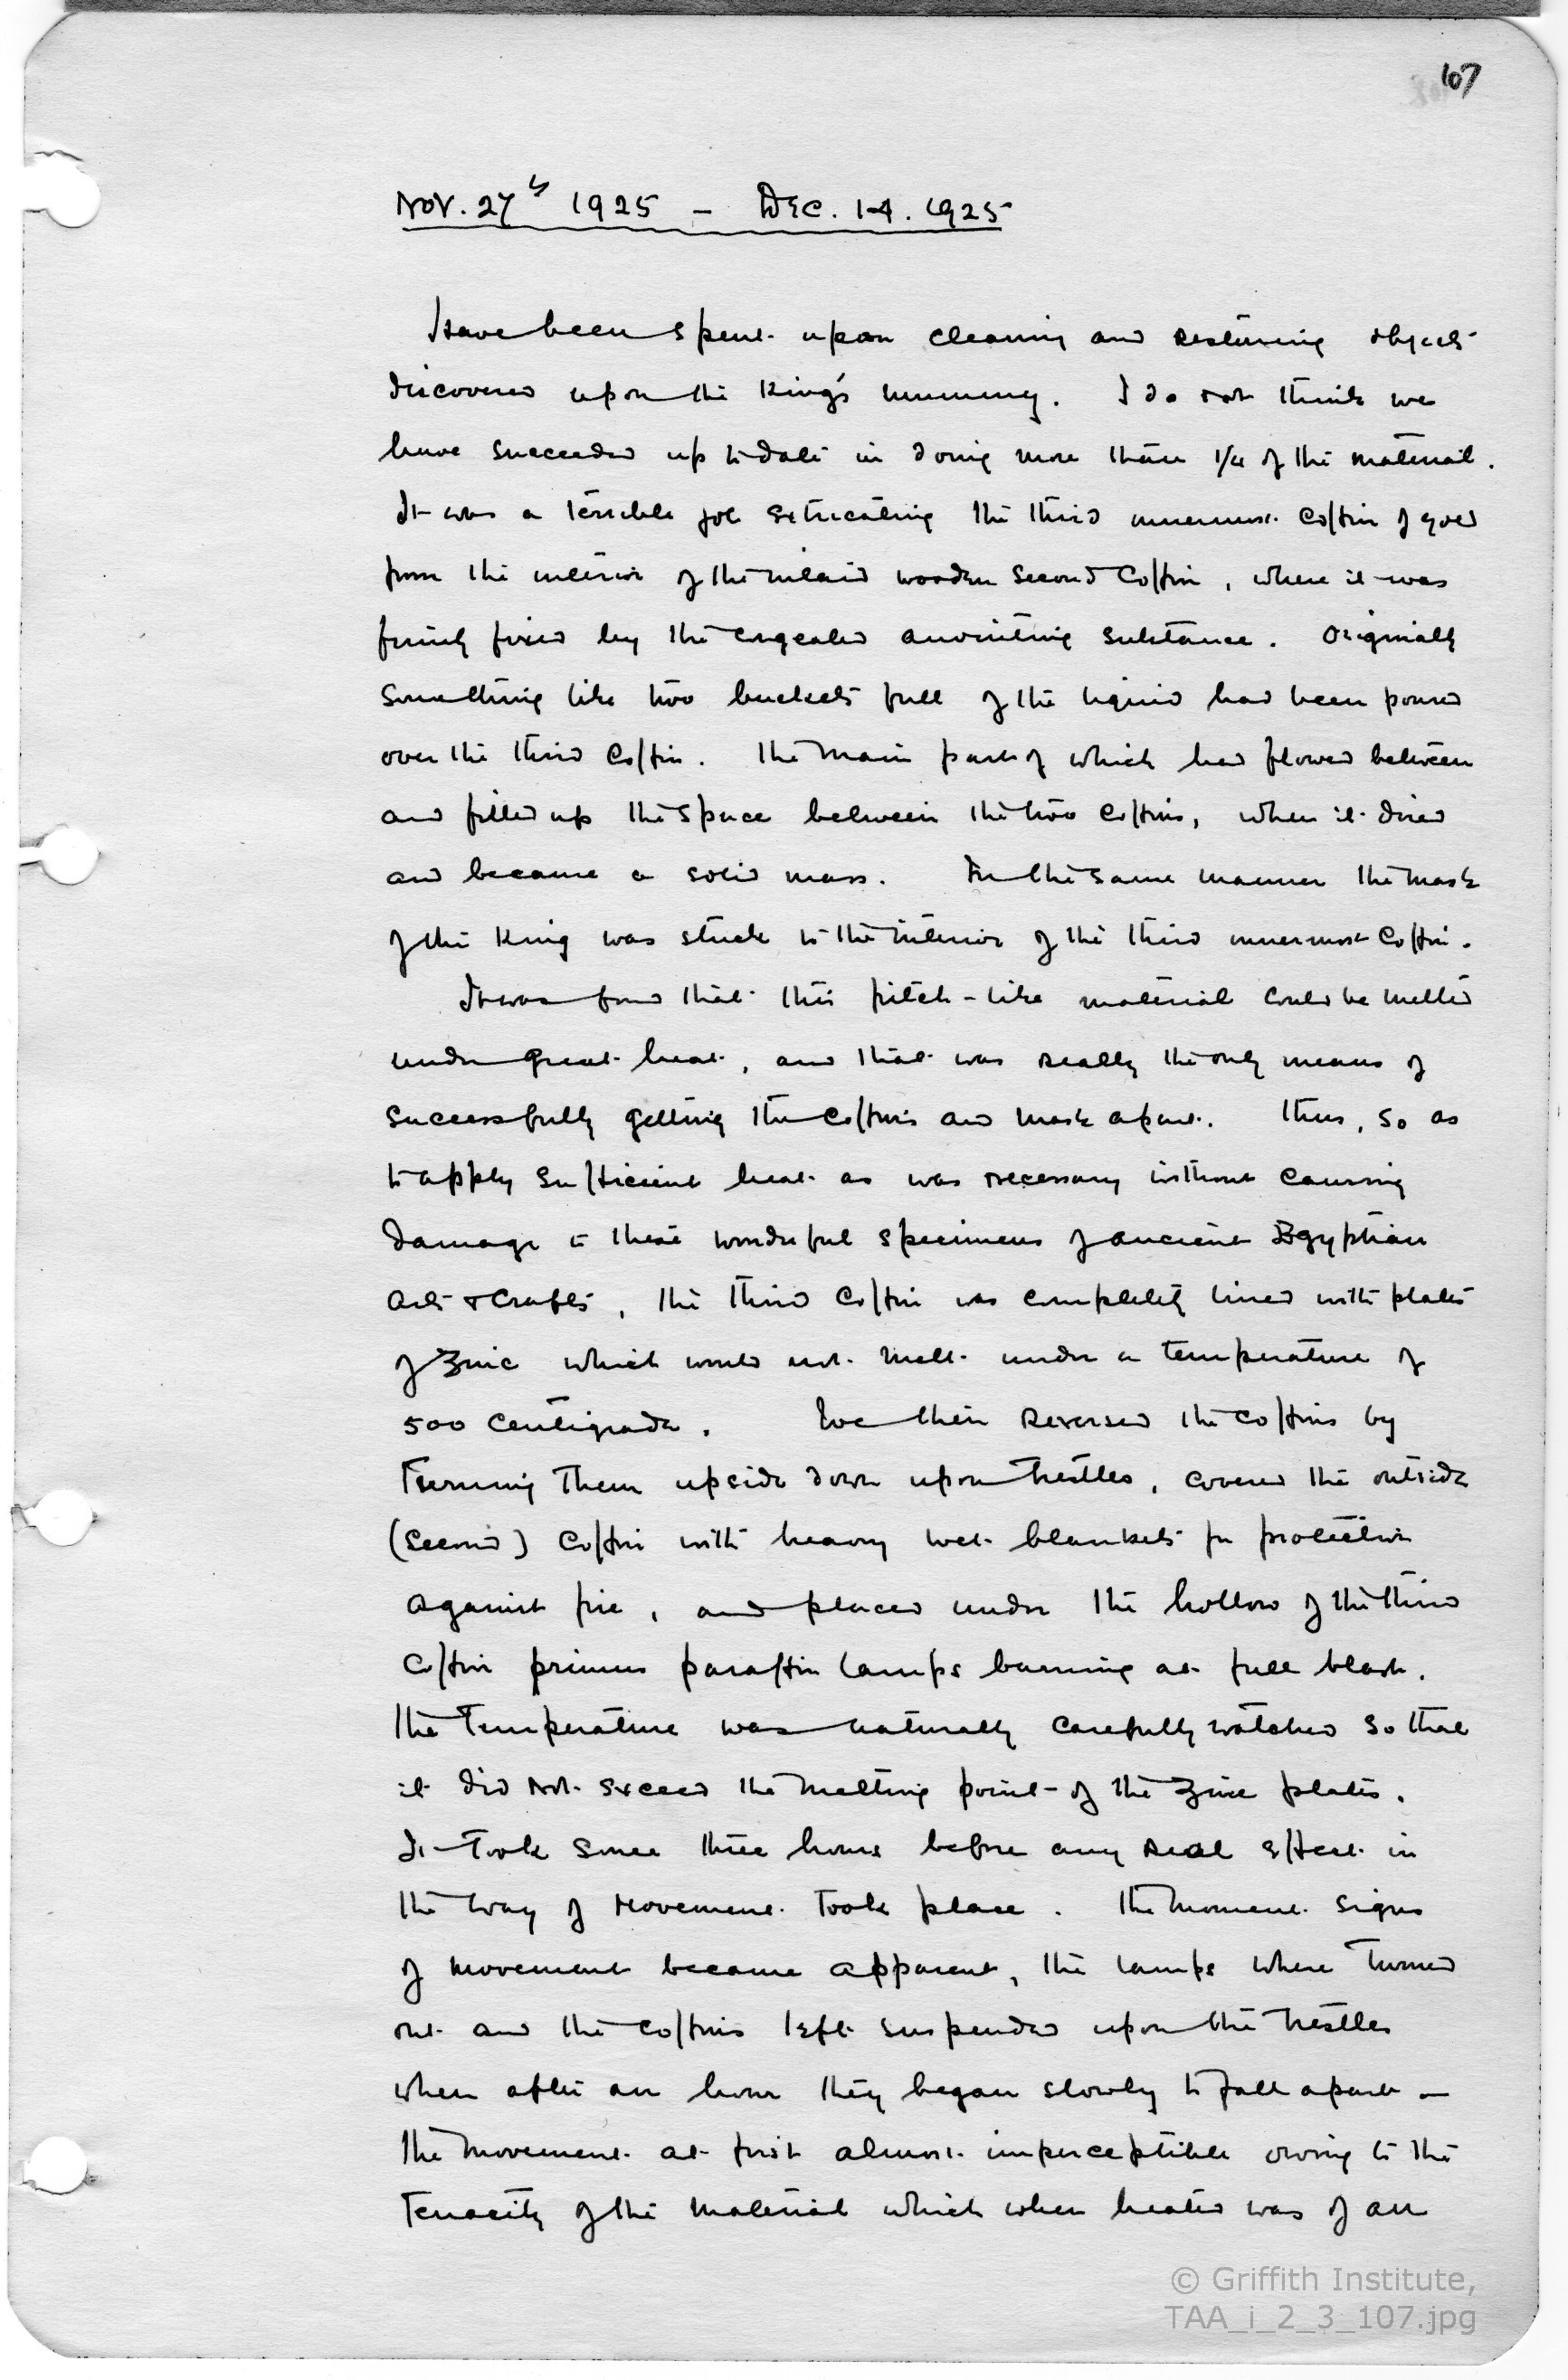 107
Nov. 27th 1925 – Dec. 14. 1925
Have been spent upon cleaning and restoring objects
discovered upon the King's mummy. I do not think we
have succeeded up to date in doing more than 1/4 of the material.
It was a terrible job extricating the third innermost coffin of gold
from the interior of the inlaid wooden second coffin, where it was
firmly fixed by the congealed anointing substance. Originally
something like two buckets full of the liquid had been poured
over the third coffin. The main part of which had flowed between
and filled up the space between the two coffins, when it dried
and became a solid mass. In the same manner the mask
of the King was stuck to the interior of the third innermost coffin.
It was found that this pitch-like material could be melted
under great heat, and that was really the only means of
successfully getting the coffins and mask apart. Thus, so as
to apply sufficient heat as was necessary without causing
damage to these wonderful specimens of ancient Egyptian
arts & crafts, the third coffin was completely lined with plates
of zinc which would not melt under a temperature of
500 centigrade. We then reversed the coffins by
turning them upside down upon trestles, covered the outside
(second) coffin with heavy wet blankets for protection
against fire, and placed under the hollow of the third
coffin primus paraffin lamps burning at full blast.
The temperature was naturally carefully watched so that
it did not exceed the melting point of the zinc plates.
It took some three hours before any real effect in
the way of movement took place. The moment signs
of movement became apparent, the lamps where turned
out and the coffins left suspended upon the trestles
when after an hour they began slowly to fall apart –
the movement at first almost imperceptible owing to the
tenacity of the material which when heated was of an
© Griffith Institute,
TAA_i_2_3_107.jpg